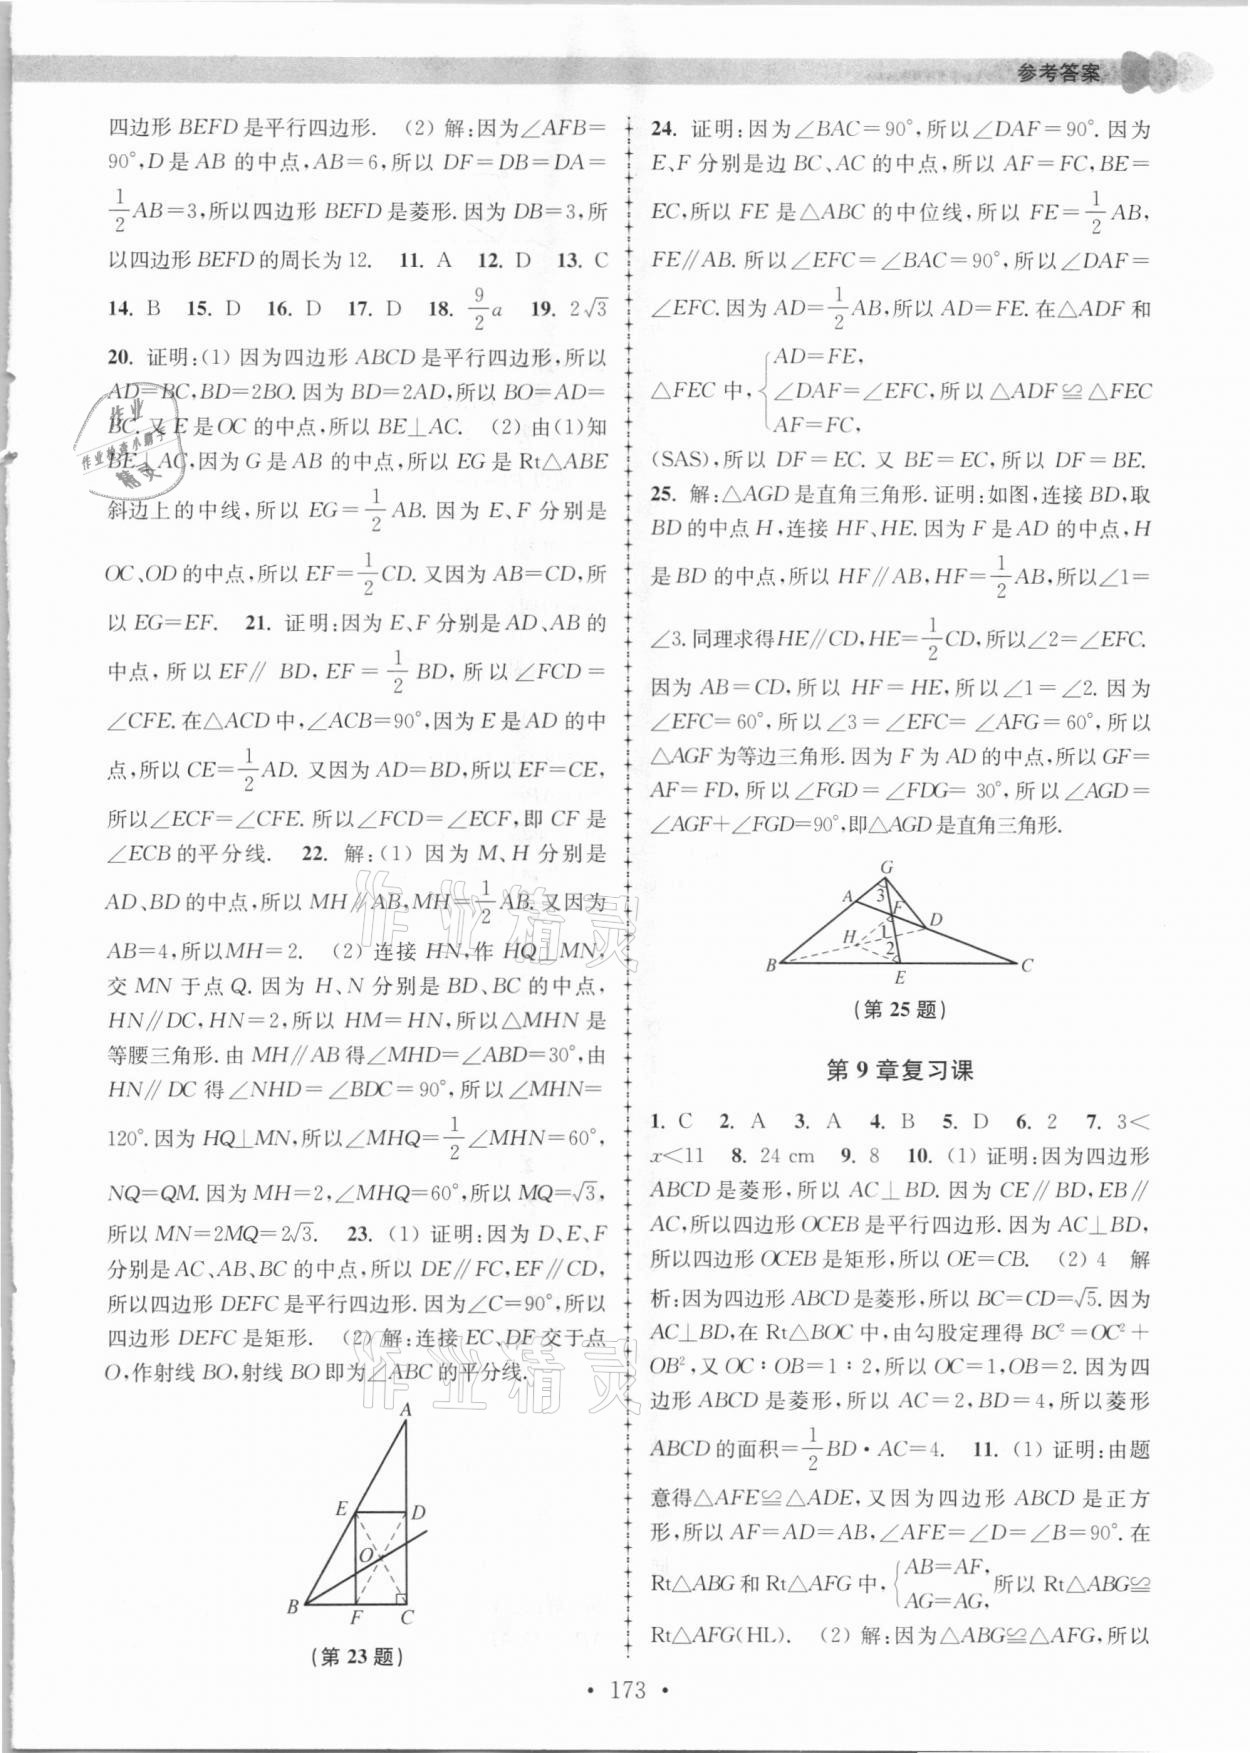 参考答案
四边形 BEFD 是平行四边形. (2) 解:因为∠AFB=
90°,D 是 AB 的中点,AB=6,所以 DF=DB=DA=
1/2 AB=3,所以四边形 BEFD 是菱形.因为 DB=3,所
以四边形 BEFD 的周长为 12. 11. A 12. D 13. C
14. B 15. D 16. D 17. D 18. 9/2 a 19. 2√3
20. 证明:(1) 因为四边形 ABCD 是平行四边形,所以
AD=BC,BD=2BO.因为 BD=2AD,所以 BO=AD=
BC.又 E 是 OC 的中点,所以 BE⊥AC. (2) 由(1)知
BE⊥AC,因为 G 是 AB 的中点,所以 EG 是 Rt△ABE
斜边上的中线,所以 EG=1/2 AB.因为 E、F 分别是
OC、OD 的中点,所以 EF=1/2 CD.又因为 AB=CD,所
以 EG=EF. 21. 证明:因为 E、F 分别是 AD、AB 的
中点,所以 EF∥BD,EF=1/2 BD,所以∠FCD=
∠CFE.在△ACD 中,∠ACB=90°,因为 E 是 AD 的中
点,所以 CE=1/2 AD.又因为 AD=BD,所以 EF=CE,
所以∠ECF=∠CFE.所以∠FCD=∠ECF,即 CF 是
∠ECB 的平分线. 22. 解:(1) 因为 M、H 分别是
AD、BD 的中点,所以 MH∥AB,MH=1/2 AB.又因为
AB=4,所以 MH=2. (2) 连接 HN,作 HQ⊥MN,
交 MN 于点 Q.因为 H、N 分别是 BD、BC 的中点,
HN∥DC,HN=2,所以 HM=HN,所以△MHN 是
等腰三角形.由 MH∥AB 得∠MHD=∠ABD=30°,由
HN∥DC 得∠NHD=∠BDC=90°,所以∠MHN=
120°.因为 HQ⊥MN,所以∠MHQ=1/2∠MHN=60°,
NQ=QM.因为 MH=2,∠MHQ=60°,所以 MQ=√3,
所以 MN=2MQ=2√3. 23. (1) 证明:因为 D、E、F
分别是 AC、AB、BC 的中点,所以 DE∥FC,EF∥CD,
所以四边形 DEFC 是平行四边形.因为∠C=90°,所以
四边形 DEFC 是矩形. (2) 解:连接 EC、DF 交于点
O,作射线 BO,射线 BO 即为∠ABC 的平分线.
A
E D
O
B F C
(第 23 题)
24. 证明:因为∠BAC=90°,所以∠DAF=90°.因为
E、F 分别是边 BC、AC 的中点,所以 AF=FC,BE=
EC,所以 FE 是△ABC 的中位线,所以 FE=1/2 AB,
FE∥AB.所以∠EFC=∠BAC=90°,所以∠DAF=
∠EFC.因为 AD=1/2 AB,所以 AD=FE.在△ADF 和
AD=FE,
△FEC 中,{∠DAF=∠EFC,所以△ADF≌△FEC
AF=FC,
(SAS),所以 DF=EC.又 BE=EC,所以 DF=BE.
25. 解:△AGD 是直角三角形.证明:如图,连接 BD,取
BD 的中点 H,连接 HF、HE.因为 F 是 AD 的中点,H
是 BD 的中点,所以 HF∥AB,HF=1/2 AB,所以∠1=
∠3.同理求得 HE∥CD,HE=1/2 CD,所以∠2=∠EFC.
因为 AB=CD,所以 HF=HE,所以∠1=∠2.因为
∠EFC=60°,所以∠3=∠EFC=∠AFG=60°,所以
△AGF 为等边三角形.因为 F 为 AD 的中点,所以 GF=
AF=FD,所以∠FGD=∠FDG=30°,所以∠AGD=
∠AGF+∠FGD=90°,即△AGD 是直角三角形.
G
A 3 F
D
H 1
2
B E C
(第 25 题)
第 9 章复习课
1. C 2. A 3. A 4. B 5. D 6. 2 7. 3<
x<11 8. 24 cm 9. 8 10. (1) 证明:因为四边形
ABCD 是菱形,所以 AC⊥BD.因为 CE∥BD,EB∥
AC,所以四边形 OCEB 是平行四边形.因为 AC⊥BD,
所以四边形 OCEB 是矩形,所以 OE=CB. (2) 4 解
析:因为四边形 ABCD 是菱形,所以 BC=CD=√5.因为
AC⊥BD,在 Rt△BOC 中,由勾股定理得 BC²=OC²+
OB²,又 OC∶OB=1∶2,所以 OC=1,OB=2.因为四
边形 ABCD 是菱形,所以 AC=2,BD=4,所以菱形
ABCD 的面积=1/2 BD·AC=4. 11. (1) 证明:由题
意得△AFE≌△ADE,又因为四边形 ABCD 是正方
形,所以 AF=AD=AB,∠AFE=∠D=∠B=90°.在
Rt△ABG 和 Rt△AFG 中,{AB=AF, AG=AG,所以 Rt△ABG≌
Rt△AFG(HL). (2) 解:因为△ABG≌△AFG,所以
· 173 ·
作业精灵
作业精灵
作业
作业检查小助手
精灵